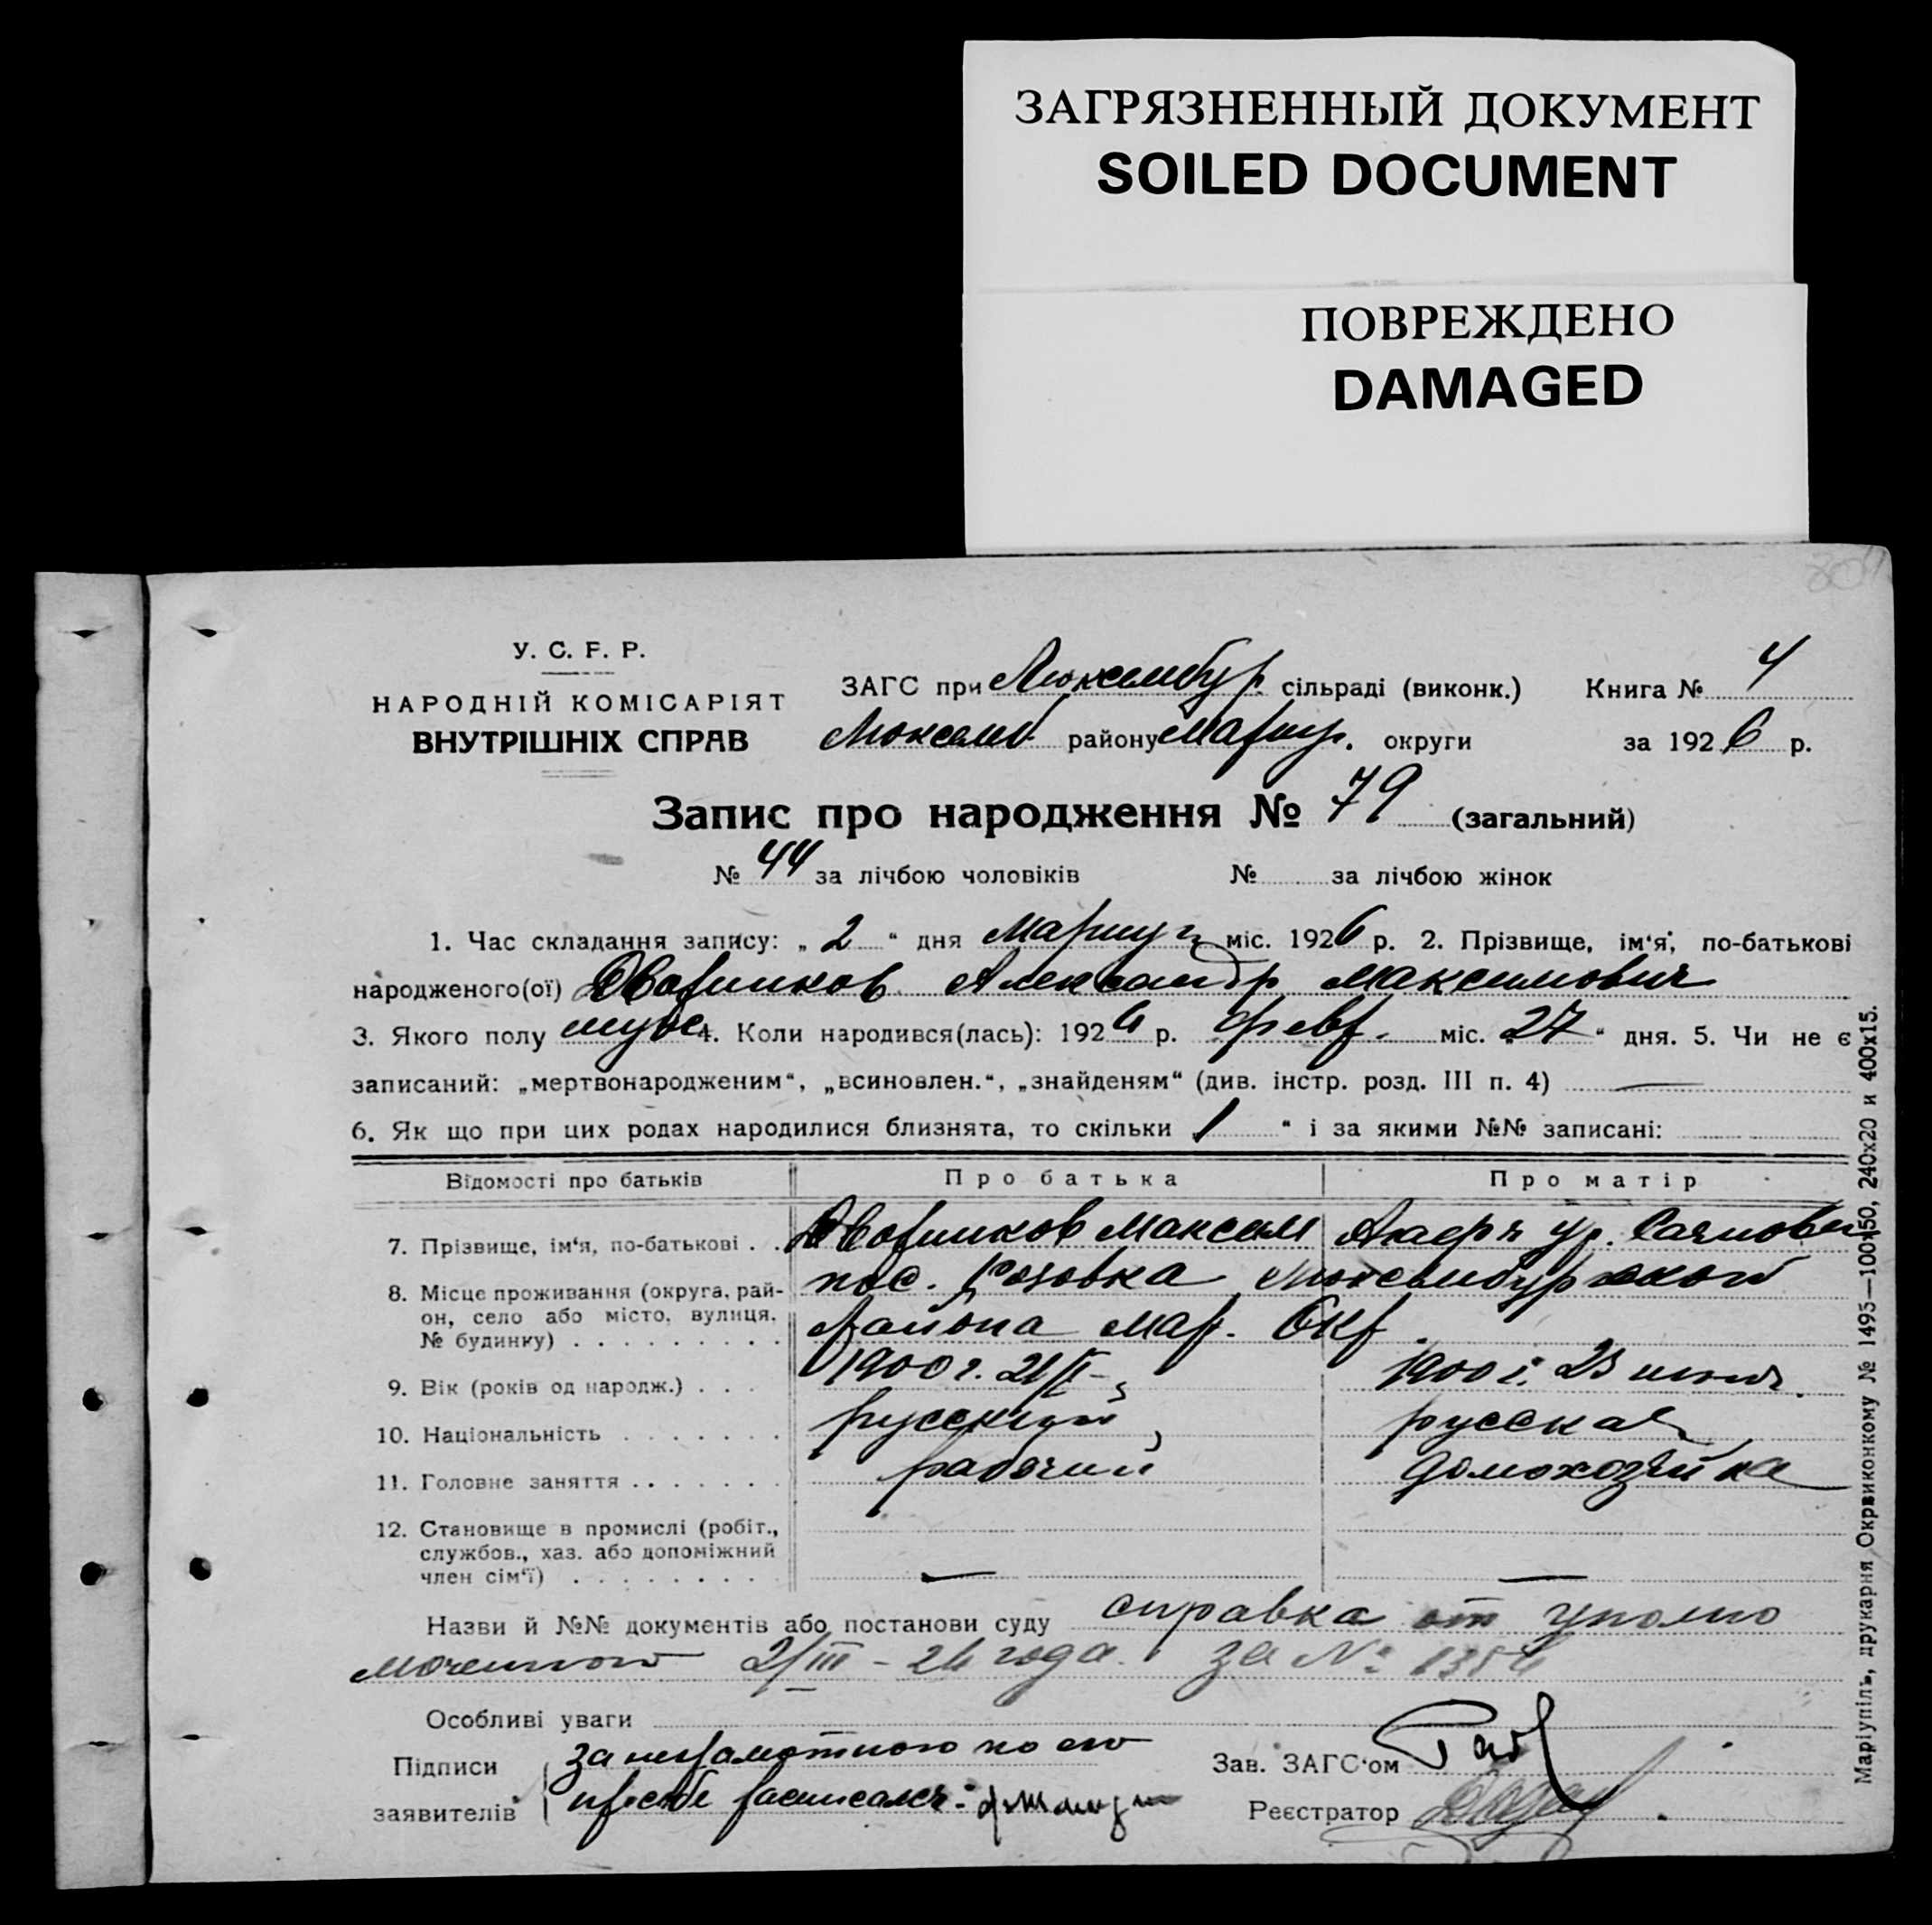 ЗАГРЯЗНЕННЫЙ ДОКУМЕНТ
SOILED DOCUMENT
ПОВРЕЖДЕНО
DAMAGED
У. С. Р. Р.
НАРОДНІЙ КОМІСАРІЯТ
ВНУТРІШНІХ СПРАВ
ЗАГС при Люксембур. сільраді (виконк.) Книга № 4
Люксемб району Мариуп. округи за 1926 р.
Запис про народження № 79 (загальний)
№ 44 за лічбою чоловіків № за лічбою жінок
1. Час складання запису: „ 2 “ дня Марта міс. 1926 р. 2. Прізвище, ім‘я, по-батькові
народженого(ої) Дворников Александр Максимович
3. Якого полу муж 4. Коли народився(лась): 1926 р. февр. міс. 27 “ дня. 5. Чи не є
записаний: „мертвонародженим“, „всиновлен.“, „знайденям“ (див. інстр. розд. III п. 4) —
6. Як що при цих родах народилися близнята, то скільки „ 1 “ і за якими №№ записані:
Відомості про батьків Про батька Про матір
7. Прізвище, ім‘я, по-батькові . . Дворников Максим ур.
8. Місце проживання (округа, рай- пос. Розовка Люксембургской
он, село або місто, вулиця, района Мар. Окр.
№ будинку) . . . . . . . . .
9. Вік (років од народж.) . . . 1900 г. 1900 г. 23
10. Національність . . . . . . . русский русская
11. Головне заняття . . . . . . . рабочий домохозяйка
12. Становище в промислі (робіт.,
службов., хаз. або допоміжний
член сім‘ї) . . . . . . . . . — —
Назви й №№ документів або постанови суду справка от уполно
моченного 2/III – 26 года за №
Особливі уваги
Підписи за неграмотного по его Зав. ЗАГС‘ом
заявителів просьбе расписался: Реєстратор
Маріупіль, друкарня Окрвиконкому № 1495—100×150, 240х20 и 400х15.